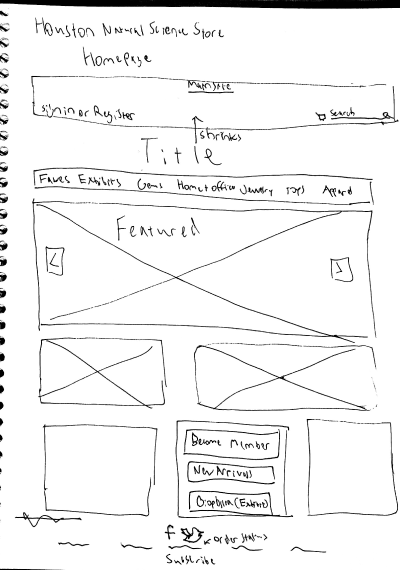 Houston Natural Science Store
Homepage
Main Site
Sign in or Register
Search
shrinks
Title
Faves Exhibits Gems Home + office Jewelry Toys Apparel
Featured
<
>
Become Member
New Arrivals
(Exhibit)
f
order status
Subscribe